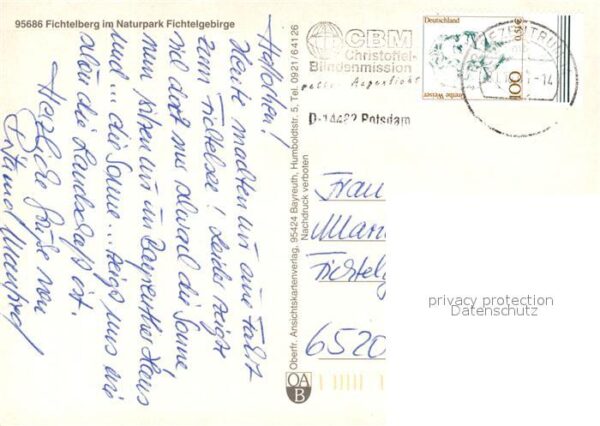 95686 Fichtelberg im Naturpark Fichtelgebirge
Hallöchen!
Heute machten wir eine Fahrt
zum Fichtelsee! Leider zeigte
sie doch nur die Sonne,
nun sitzen wir im Bayreuther Haus
und... die Sonne... zeigt uns wie
schön die Landschaft ist.
Herzliche Grüße von
Manfred
Oberfr. Ansichtskartenverlag, 95424 Bayreuth, Humboldtstr. 5, Tel. 0921/64126
Nachdruck verboten
OA
B
CBM
Christoffel-
Blindenmission
rettet Augenlicht
D-14482 Potsdam
Deutschland
100
Frau
Fichtelg
6520
privacy protection
Datenschutz